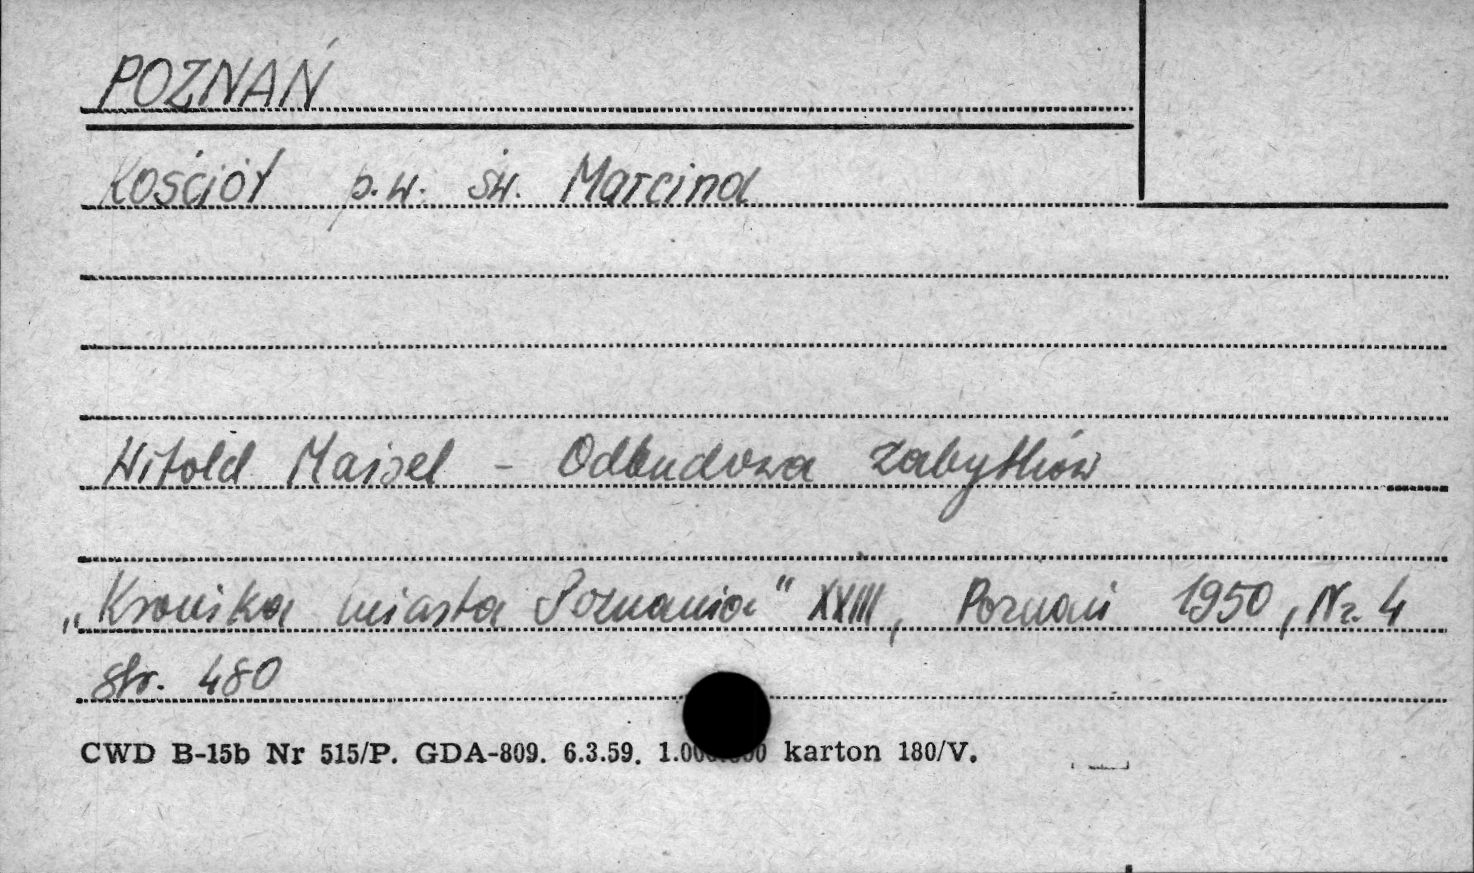 POZNAŃ
Kościół p.w. św. Marcina
Witold Maisel - Odbudowa zabytków
„Kronika miasta Poznania" XXIII, Poznań 1950, Nr. 4
str. 480
CWD B-15b Nr 515/P. GDA-809. 6.3.59. 1.000.000 karton 180/V.